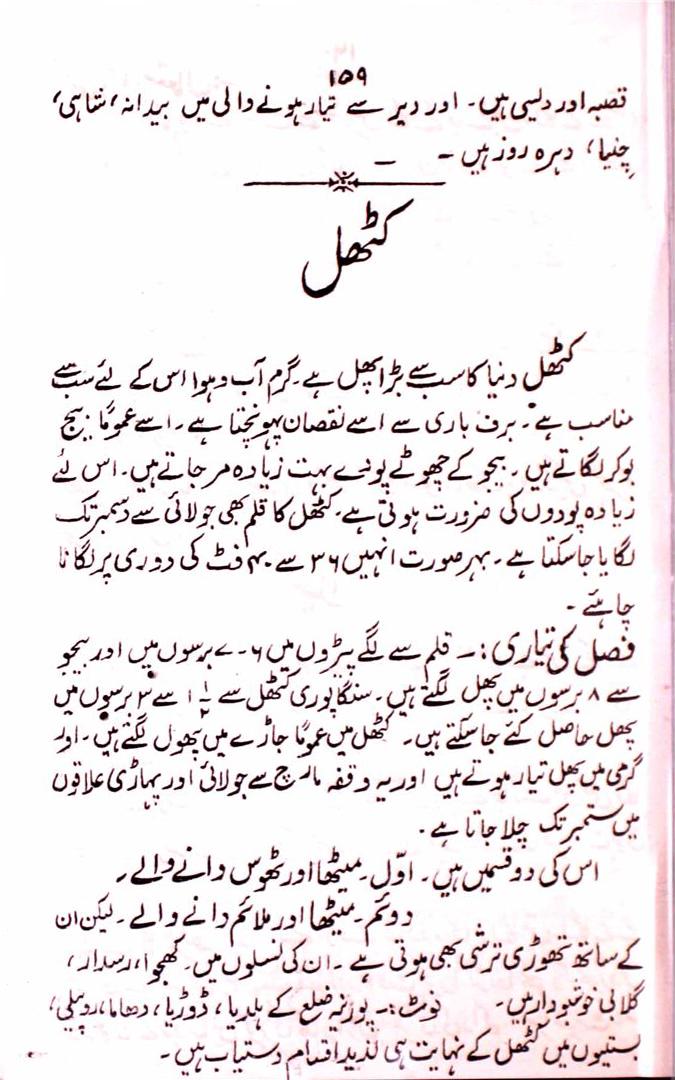 ۱۵۹
قصبہ اور دلیسی ہیں۔ اور دیر سے تیار ہونے والی میں بیدانہ، شاہی،
چنیا، دہرہ روز ہیں۔
کٹھل
کٹھل دنیا کا سب سے بڑا پھل ہے۔ گرم آب و ہوا اس کے لئے سب سے
مناسب ہے۔ برف باری سے اسے نقصان پہونچتا ہے۔ اسے عموماً بیج
بو کر لگاتے ہیں۔ بیجو کے چھوٹے پودے بہت زیادہ مر جاتے ہیں۔ اس لئے
زیادہ پودوں کی ضرورت ہوتی ہے۔ کٹھل کا قلم بھی جولائی سے دسمبر تک
لگایا جا سکتا ہے۔ بہر صورت انہیں ۳۶ سے ۴۰ فٹ کی دوری پر لگانا
چاہئے۔
فصل کی تیاری :۔ قلم سے لگے پیڑوں میں ۶-۷ برسوں میں اور بیجو
سے ۸ برسوں میں پھل لگتے ہیں۔ سنگاپوری کٹھل سے ۱ ۱/۲ سے ۳ برسوں میں
پھل حاصل کئے جا سکتے ہیں۔ کٹھل میں عموماً جاڑے میں پھول لگتے ہیں۔ اور
گرمی میں پھل تیار ہوتے ہیں اور یہ وقفہ مارچ سے جولائی اور پہاڑی علاقوں
میں ستمبر تک چلا جاتا ہے۔
اس کی دو قسمیں ہیں۔ اوّل۔ میٹھا اور ٹھوس دانے والے۔
دوئم۔ میٹھا اور ملائم دانے والے۔ لیکن ان
کے ساتھ تھوڑی ترشی بھی ہوتی ہے۔ ان کی نسلوں میں۔ کھجوا، رسدار،
گلابی خوشبودار ہیں۔ نوٹ :۔ پورنیہ ضلع کے ہلدیا، ڈوڑیا، دھاما، روپیلی،
بستیوں میں کٹھل کے نہایت ہی لذیذ اقسام دستیاب ہیں۔